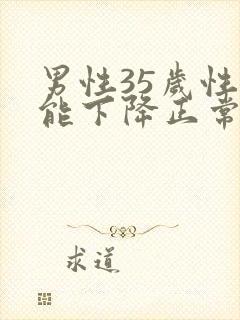 男性35岁性
能下降正常
求道